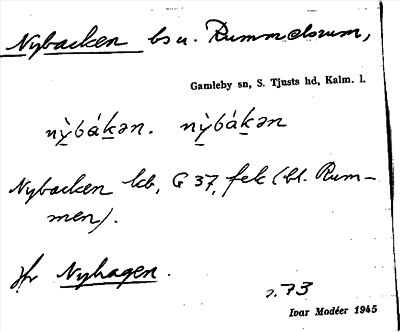 Nybacken bs u. Rummelsrum,
Gamleby sn, S. Tjusts hd, Kalm. l.
nỳbákən. nỳbákən
Nybacken lcb, G 37, fek (bl. Rum-
men).
Jfr Nyhagen.
s. 73
Ivar Modéer 1945